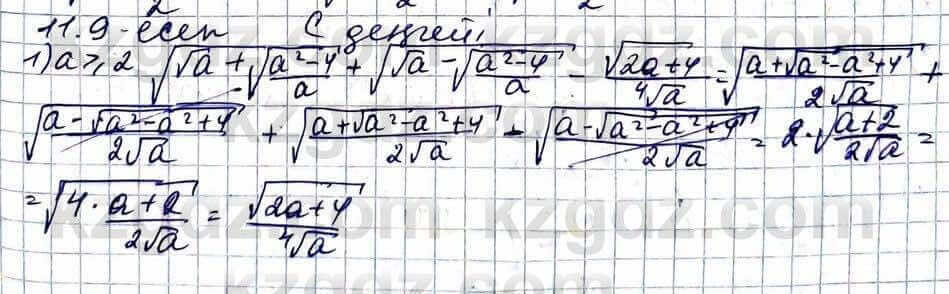 11.9-есеп C деңгей.
1) a ≥ 2 √(√a + √((a²-4)/a)) + √(√a - √((a²-4)/a)) = √(2a+4)/⁴√a = √((a+√(a²-a²+4))/(2√a)) +
√((a-√(a²-a²+4))/(2√a)) + √((a+√(a²-a²+4))/(2√a)) - √((a-√(a²-a²+4))/(2√a)) = 2·√((a+2)/(2√a)) =
= √(4·(a+2)/(2√a)) = √(2a+4)/⁴√a
kzgaz.com kzgaz.com